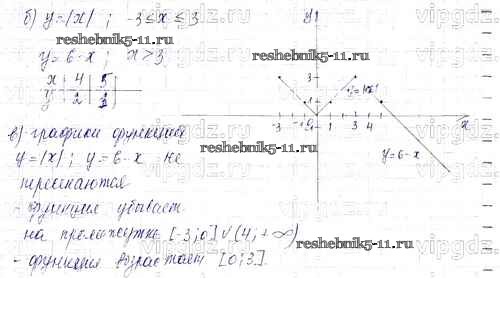 б) y=|x| ; -3≤x≤3
y=6-x ; x>3
x | 4 | 5
y | 2 | 1
в) графики функций
y=|x| ; y=6-x не
пересекаются
- функция убывает
на промежутке [-3;0]∨(4;+∞)
- функция возрастает [0;3].
y
3
1
-3 -1 0 1 3 4 x
y=|x|
y=6-x
reshebnik5-11.ru
reshebnik5-11.ru
reshebnik5-11.ru
reshebnik5-11.ru
vipgdz.ru
vipgdz.ru
vipgdz.ru
vipgdz.ru